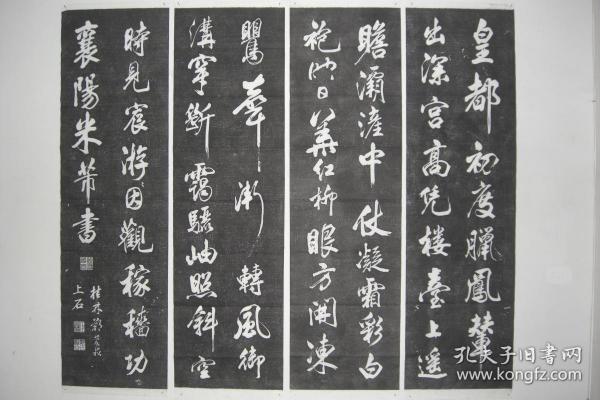 皇都初度臘鳳輦
出深宮高凭樓臺上遥
瞻灞滻中仗凝霜彩白
袍映日華紅柳眼方開凍
鸎聲漸轉風御
溝穿斷靄驪岫照斜空
時見宸游因觀稼穡功
襄陽米芾書
桂林劉
上石
孔夫子旧书网
www.kongfz.com